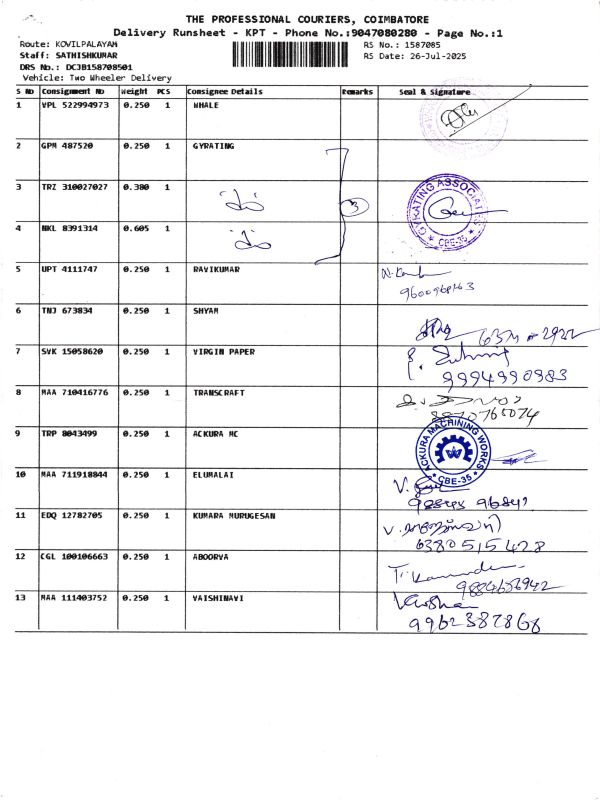 THE PROFESSIONAL COURIERS, COIMBATORE
Delivery Runsheet - KPT - Phone No.:9047080280 - Page No.:1
Route: KOVILPALAYAM
RS No.: 1587085
Staff: SATHISHKUMAR
RS Date: 26-Jul-2025
DRS No.: DCJB158708501
Vehicle: Two Wheeler Delivery
S No Consignment No Weight PCS Consignee Details Remarks Seal & Signature
1 VPL 522994973 0.250 1 WHALE
2 GPM 487520 0.250 1 GYRATING
3 TRZ 310027027 0.380 1
3
GYRATING ASSOCIATES
* CBE-35 *
4 NKL 8391314 0.605 1
5 UPT 4111747 0.250 1 RAVIKUMAR
6 TNJ 673834 0.250 1 SHYAM
7 SVK 15058620 0.250 1 VIRGIN PAPER
9994990983
8 MAA 710416776 0.250 1 TRANSCRAFT
9 TRP 8043499 0.250 1 ACKURA MC
ACKURA MACHINING WORKS
* CBE-35 *
10 MAA 711918844 0.250 1 ELUMALAI
11 EDQ 12782705 0.250 1 KUMARA MURUGESAN
6380515428
12 CGL 100106663 0.250 1 ABOORVA
9884656942
13 MAA 111403752 0.250 1 VAISHINAVI
9962387868